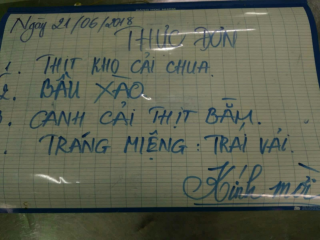 Ngày 21/06/2018
THỰC ĐƠN
1. THỊT KHO CẢI CHUA.
2. BẦU XÀO
3. CANH CẢI THỊT BẰM.
. TRÁNG MIỆNG : TRÁI VẢI.
Kính mời